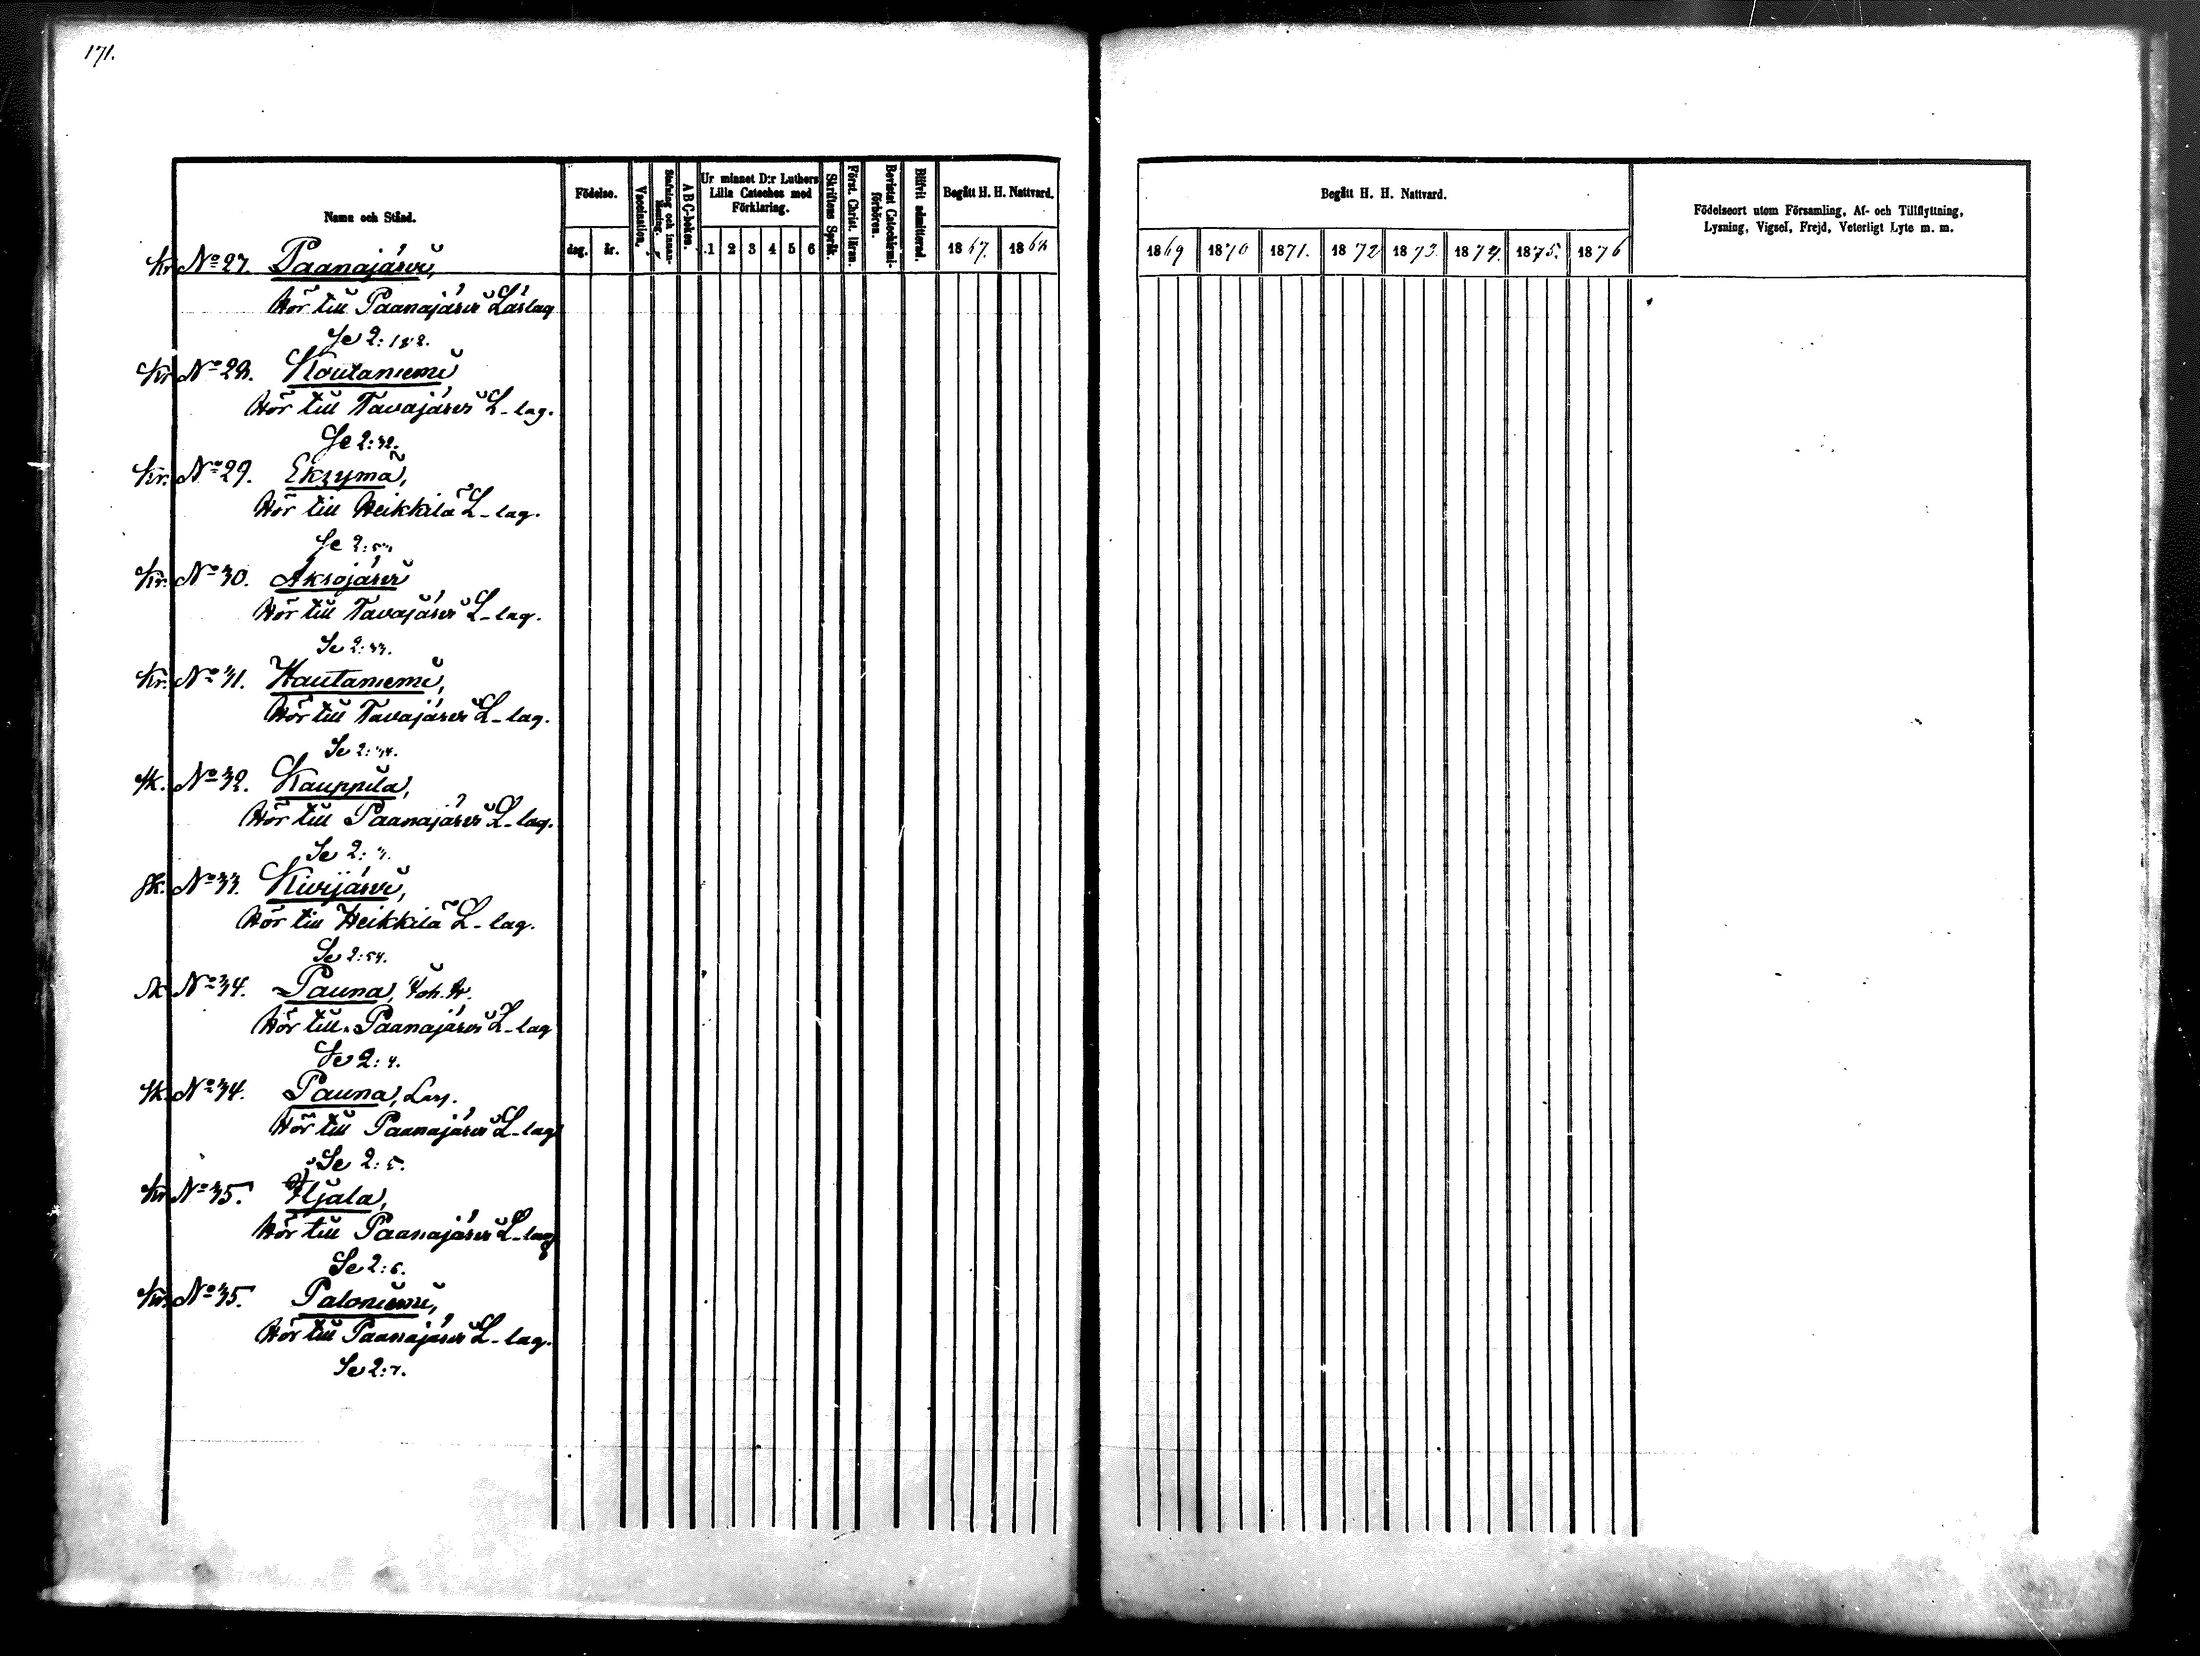 171.
Namn och Stånd.
Födelse.
dag. år.
Vaccination.
Stafning och Innanläsning.
ABC-boken.
Ur minnet D:r Luthers Lilla Cateches med Förklaring.
1 2 3 4 5 6
Skriftens Språk.
Först. Christ. läran.
Bevistat Catechismiförhören.
Blifvit admitterad.
Begått H. H. Nattvard.
1867. 1868
Begått H. H. Nattvard.
1869 1870 1871. 1872 1873. 1874. 1875. 1876
Födelseort utom Församling, Af- och Tillflyttning,
Lysning, Vigsel, Frejd, Veterligt Lyte m. m.
Kr. No 27. Paanajärvi,
Hör till Paanajärvi Läslag
Se 2: 182.
Kr. No 28. Koutaniemi
Hör till Tavajärvi L-lag.
Se 2:32.
Kr. No 29. Eksymä,
Hör till Heikkilä L-lag.
Se 2:53.
Kr. No 30. Aksojärvi
Hör till Tavajärvi L-lag.
Se 2:33.
Kr. No 31. Hautaniemi,
Hör till Tavajärvi L-lag.
Se 2:34.
Sk. No 32. Kauppila,
Hör till Paanajärvi L-lag.
Se 2: 3.
Sk. No 33. Kivijärvi,
Hör till Heikkilä L-lag.
Se 2:54.
Sk. No 34. Pauna, Joh. H.
Hör till Paanajärvi L-lag
Se 2: 4.
Sk. No 34. Pauna, Lars.
Hör till Paanajärvi L-lag
Se 2: 5.
Kr. No 35. Hjala,
Hör till Paanajärvi L-lag
Se 2: 6.
Kr. No 35. Paloniemi,
Hör till Paanajärvi L-lag.
Se 2:7.